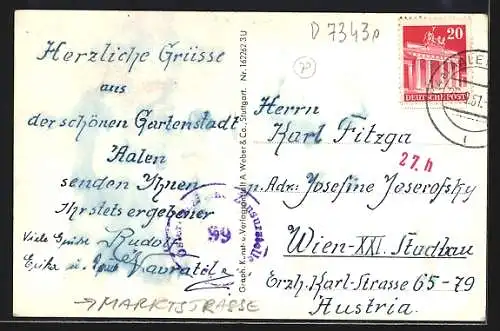 D 7343p
20
DEUTSCHE POST
70
Herzliche Grüsse
aus
der schönen Gartenstadt
Aalen
senden Ihnen
Ihr stets ergebener
Viele Grüße Rudolf
Erika u. Navratil
→ MARKTSTRASSE
Graph. Kunst- u. Verlagsanstalt A. Weber & Co., Stuttgart. Nr. 16262 3 U
99
Herrn
Karl Fitzga
27.h
u. Adr: Josefine Joserofsky
Wien-XXI. Stadlau
Erzh. Karl-Strasse 65-79
Austria.